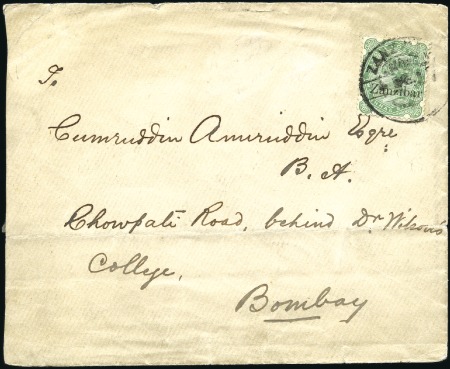 To
Cumruddin Amiruddin Esqre
B. A.
Chowpati Road, behind Dr Wilson's
College,
Bombay
Zanzibar